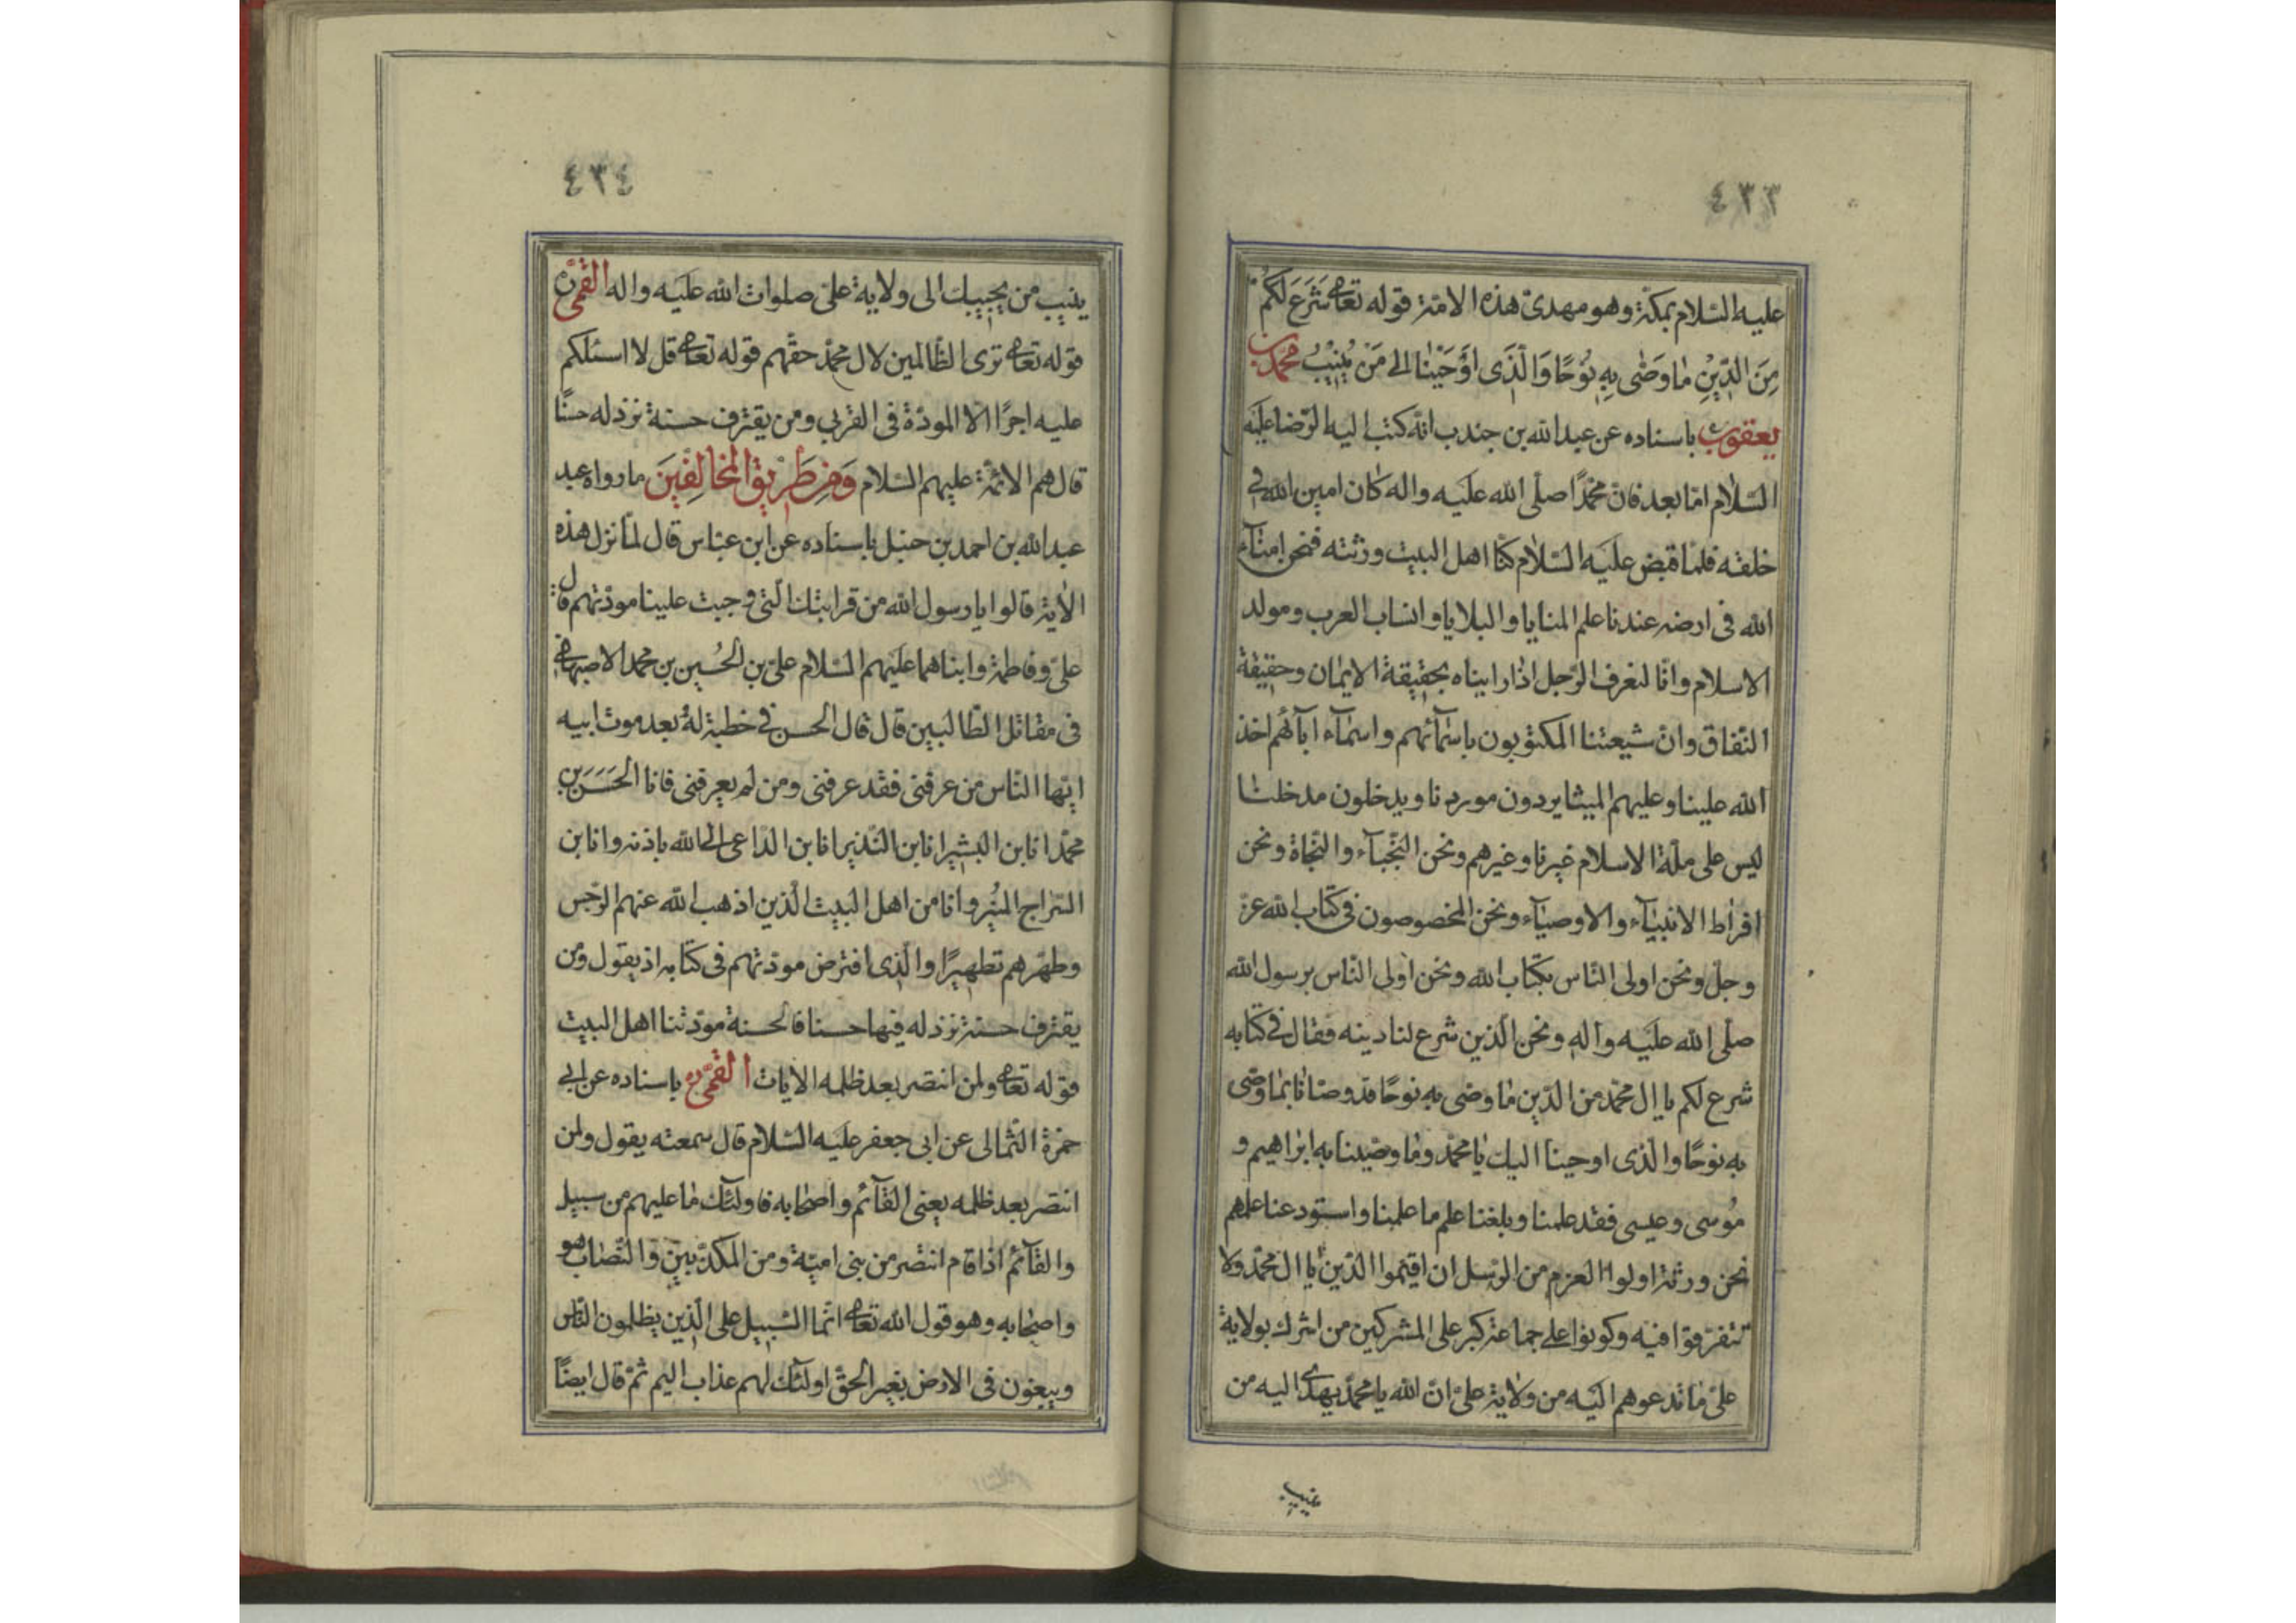 ٤٣٣
عليه السّلام بمكّة وهو مهدىّ هذه الامّة قوله تعالى شَرَعَ لَكُمْ
مِنَ الدّيْنِ مٰا وَصّٰى بِهِ نُوْحًا وَالَّذى اَوْحَيْنٰا الى مَنْ يُنيْبُ محمّد بن
يعقوب باسناده عن عبد الله بن جندب انّه كتب اليه الرّضا عليه
السّلام امّا بعد فانّ محمّدًا صلّى الله عليه واله كان امين الله فى
خلقه فلمّا قبض عليه السّلام كنّا اهل البيت ورثته فنحن امنآء
الله فى ارضه عندنا علم المنايا والبلايا وانساب العرب ومولد
الاسلام وانّا لنعرف الرّجل اذا رايناه بحقيقة الايمان وحقيقة
النّفاق وانّ شيعتنا المكتوبون باسمآئهم واسمآء ابآئهم اخذ
الله علينا وعليهم الميثا يردون موردنا ويدخلون مدخلنا
ليس على ملّة الاسلام غيرنا وغيرهم ونحن النّجبآء والنّجاة ونحن
افراط الانبيآء والاوصيآء ونحن المخصوصون فى كتاب الله عزّ
وجلّ ونحن اولى النّاس بكتاب الله ونحن اولى النّاس برسول الله
صلّى الله عليه وآله ونحن الّذين شرع لنا دينه فقال فى كتابه
شرع لكم يا ال محمّد من الدّين مٰا وصّى به نوحًا قد وصّانا بمٰا وصّى
به نوحًا والّذى اوحينا اليك يا محمّد ومٰا وصّينا به ابراهيم و
مُوسى وعيسى فقد علمنا وبلغنا علم ما علمنا واستودعنا علمهم
نحن ورثة اولوا العزم من الرّسل ان اقيموا الدّين يا ال محمّد ولا
تتفرّقوا فيه وكونوا على جماعة كبر على المشركين من اشرك بولاية
علىّ مٰا تدعوهم اليه من ولاية علىّ انّ الله يا محمّد يهدى اليه من
ينيب
٤٣٤
ينيب من يجيبك الى ولاية علىّ صلوات الله عليه واله القمّى
قوله تعالى ترى الظّالمين لال محمّد حقّهم قوله تعالى قل لا اسئلكم
عليه اجرًا الّا المودّة فى القربى ومن يقترف حسنة نزد له حسنًا
قال هم الائمّة عليهم السّلام وَمِنْ طَرِيْقِ الْمُخالِفيْنَ ما رواه عبد
عبد الله بن احمد بن حنبل باسناده عن ابن عبّاس قال لمّا نزل هذه
الاٰية قالوا يا رسول الله من قرابتك الّتى وجبت علينا مودّتهم قال
علىّ وفاطمة وابناهما عليهم السّلام علىّ بن الحُسين بن محمد الاصبهانى
فى مقاتل الطّالبيين قال قال الحسن فى خطبة لهُ بعد موت ابيه
ايّها النّاس من عرفنى فقد عرفنى ومن لم يعرفنى فانا الحَسَن بن
محمّد انا بن البشير انا بن النّذير انا بن الدّاعى الى الله باذنه وانا بن
السّراج المنُير وانا من اهل البيت الّذين اذهب الله عنهم الرّجس
وطهّرهم تطهيرًا والّذى افترض مودّتهم فى كتابه اذ يقول ومن
يقترف حسنة نزد له فيها حسنا فالحسنة مودّتنا اهل البيت
قوله تعالى ولمن انتصر بعد ظلمه الايات القمّى باسناده عن ابى
حمزة الثّمالى عن ابى جعفر عليه السّلام قال سمعته يقول ولمن
انتصر بعد ظلمه يعنى القآئم واصحٰابه فاولئك مٰا عليهم من سبيل
والقآئم اذا قام انتصر من بنى اميّة ومن المكذّبين والنّصّاب هو
واصحٰابه وهو قول الله تعالى انّما السّبيل على الّذين يظلمون النّاس
ويبغون فى الارض بغير الحقّ اولئك لهم عذاب اليم ثمّ قال ايضًا